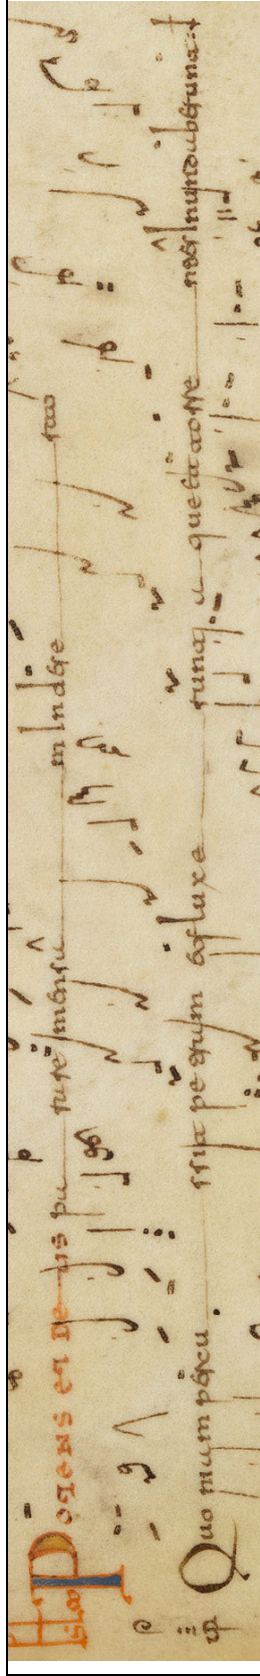 Potens est deus pa rare mensa m In dese rto
Quoniam percu ssit petram et fluxe runt a que et torre ntes Inundaberunt